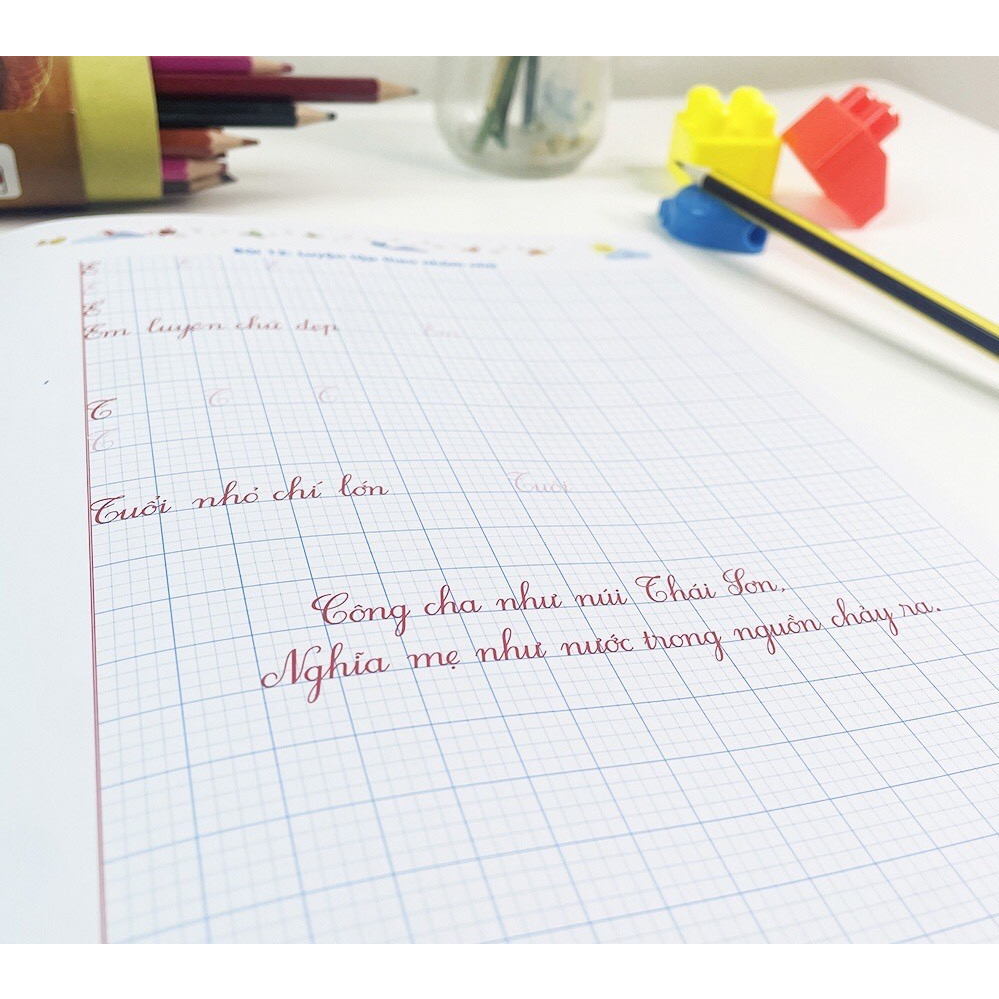 Bài 13: Luyện tập theo nhóm chữ
E
E
Em luyện chữ đẹp Em
T T T
T
Tuổi nhỏ chí lớn Tuổi
Công cha như núi Thái Sơn,
Nghĩa mẹ như nước trong nguồn chảy ra.